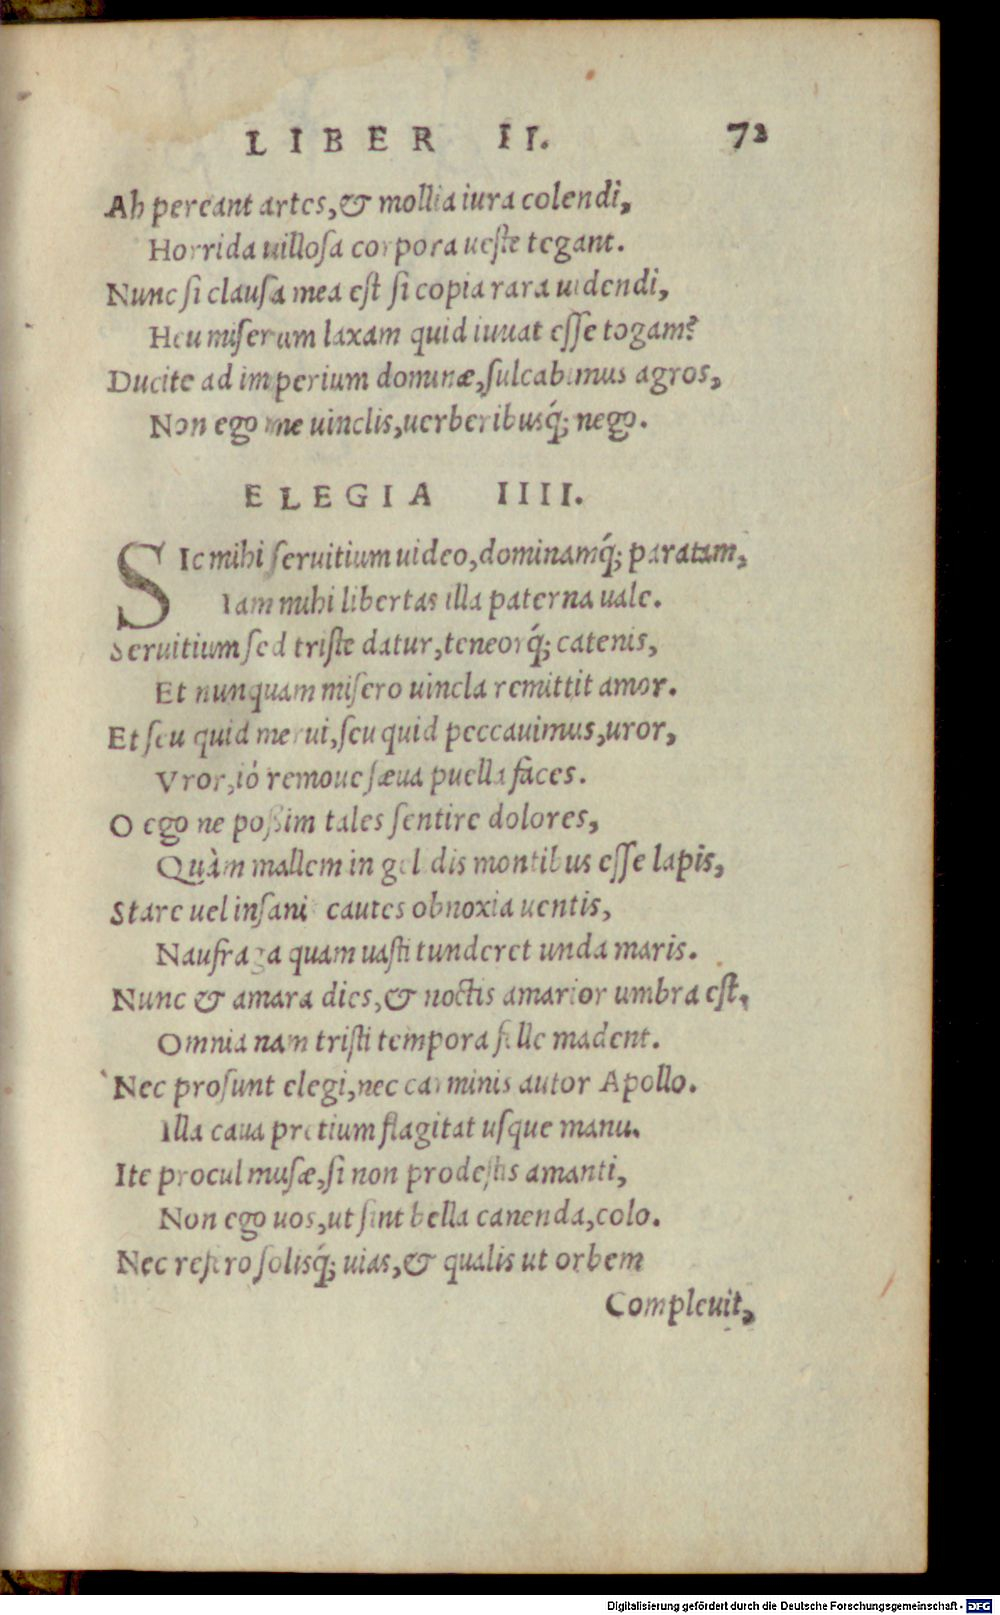 LIBER II. 72
Ah pereant artes,& mollia iura colendi,
Horrida uillosa corpora ueste tegant.
Nunc si clausa mea est si copia rara uidendi,
Heu miserum laxam quid iuuat esse togam?
Ducite ad imperium dominæ,sulcabimus agros,
Non ego me uinclis,uerberibusq́; nego.
ELEGIA IIII.
SIc mihi seruitium uideo,dominamq́; paratam,
Iam mihi libertas illa paterna uale.
Seruitium sed triste datur,teneorq́; catenis,
Et nunquam misero uincla remittit amor.
Et seu quid merui,seu quid peccauimus,uror,
Vror,ió remoue sæua puella faces.
O ego ne poßim tales sentire dolores,
Quàm mallem in gelidis montibus esse lapis,
Stare uel insani cautes obnoxia uentis,
Naufraga quam uasti tunderet unda maris.
Nunc & amara dies,& noctis amarior umbra est,
Omnia nam tristi tempora felle madent.
Nec prosunt elegi,nec carminis autor Apollo.
Illa caua pretium flagitat usque manu.
Ite procul musæ,si non prodestis amanti,
Non ego uos,ut sint bella canenda,colo.
Nec refero solisq́; uias,& qualis ut orbem
Compleuit,
Digitalisierung gefördert durch die Deutsche Forschungsgemeinschaft - DFG